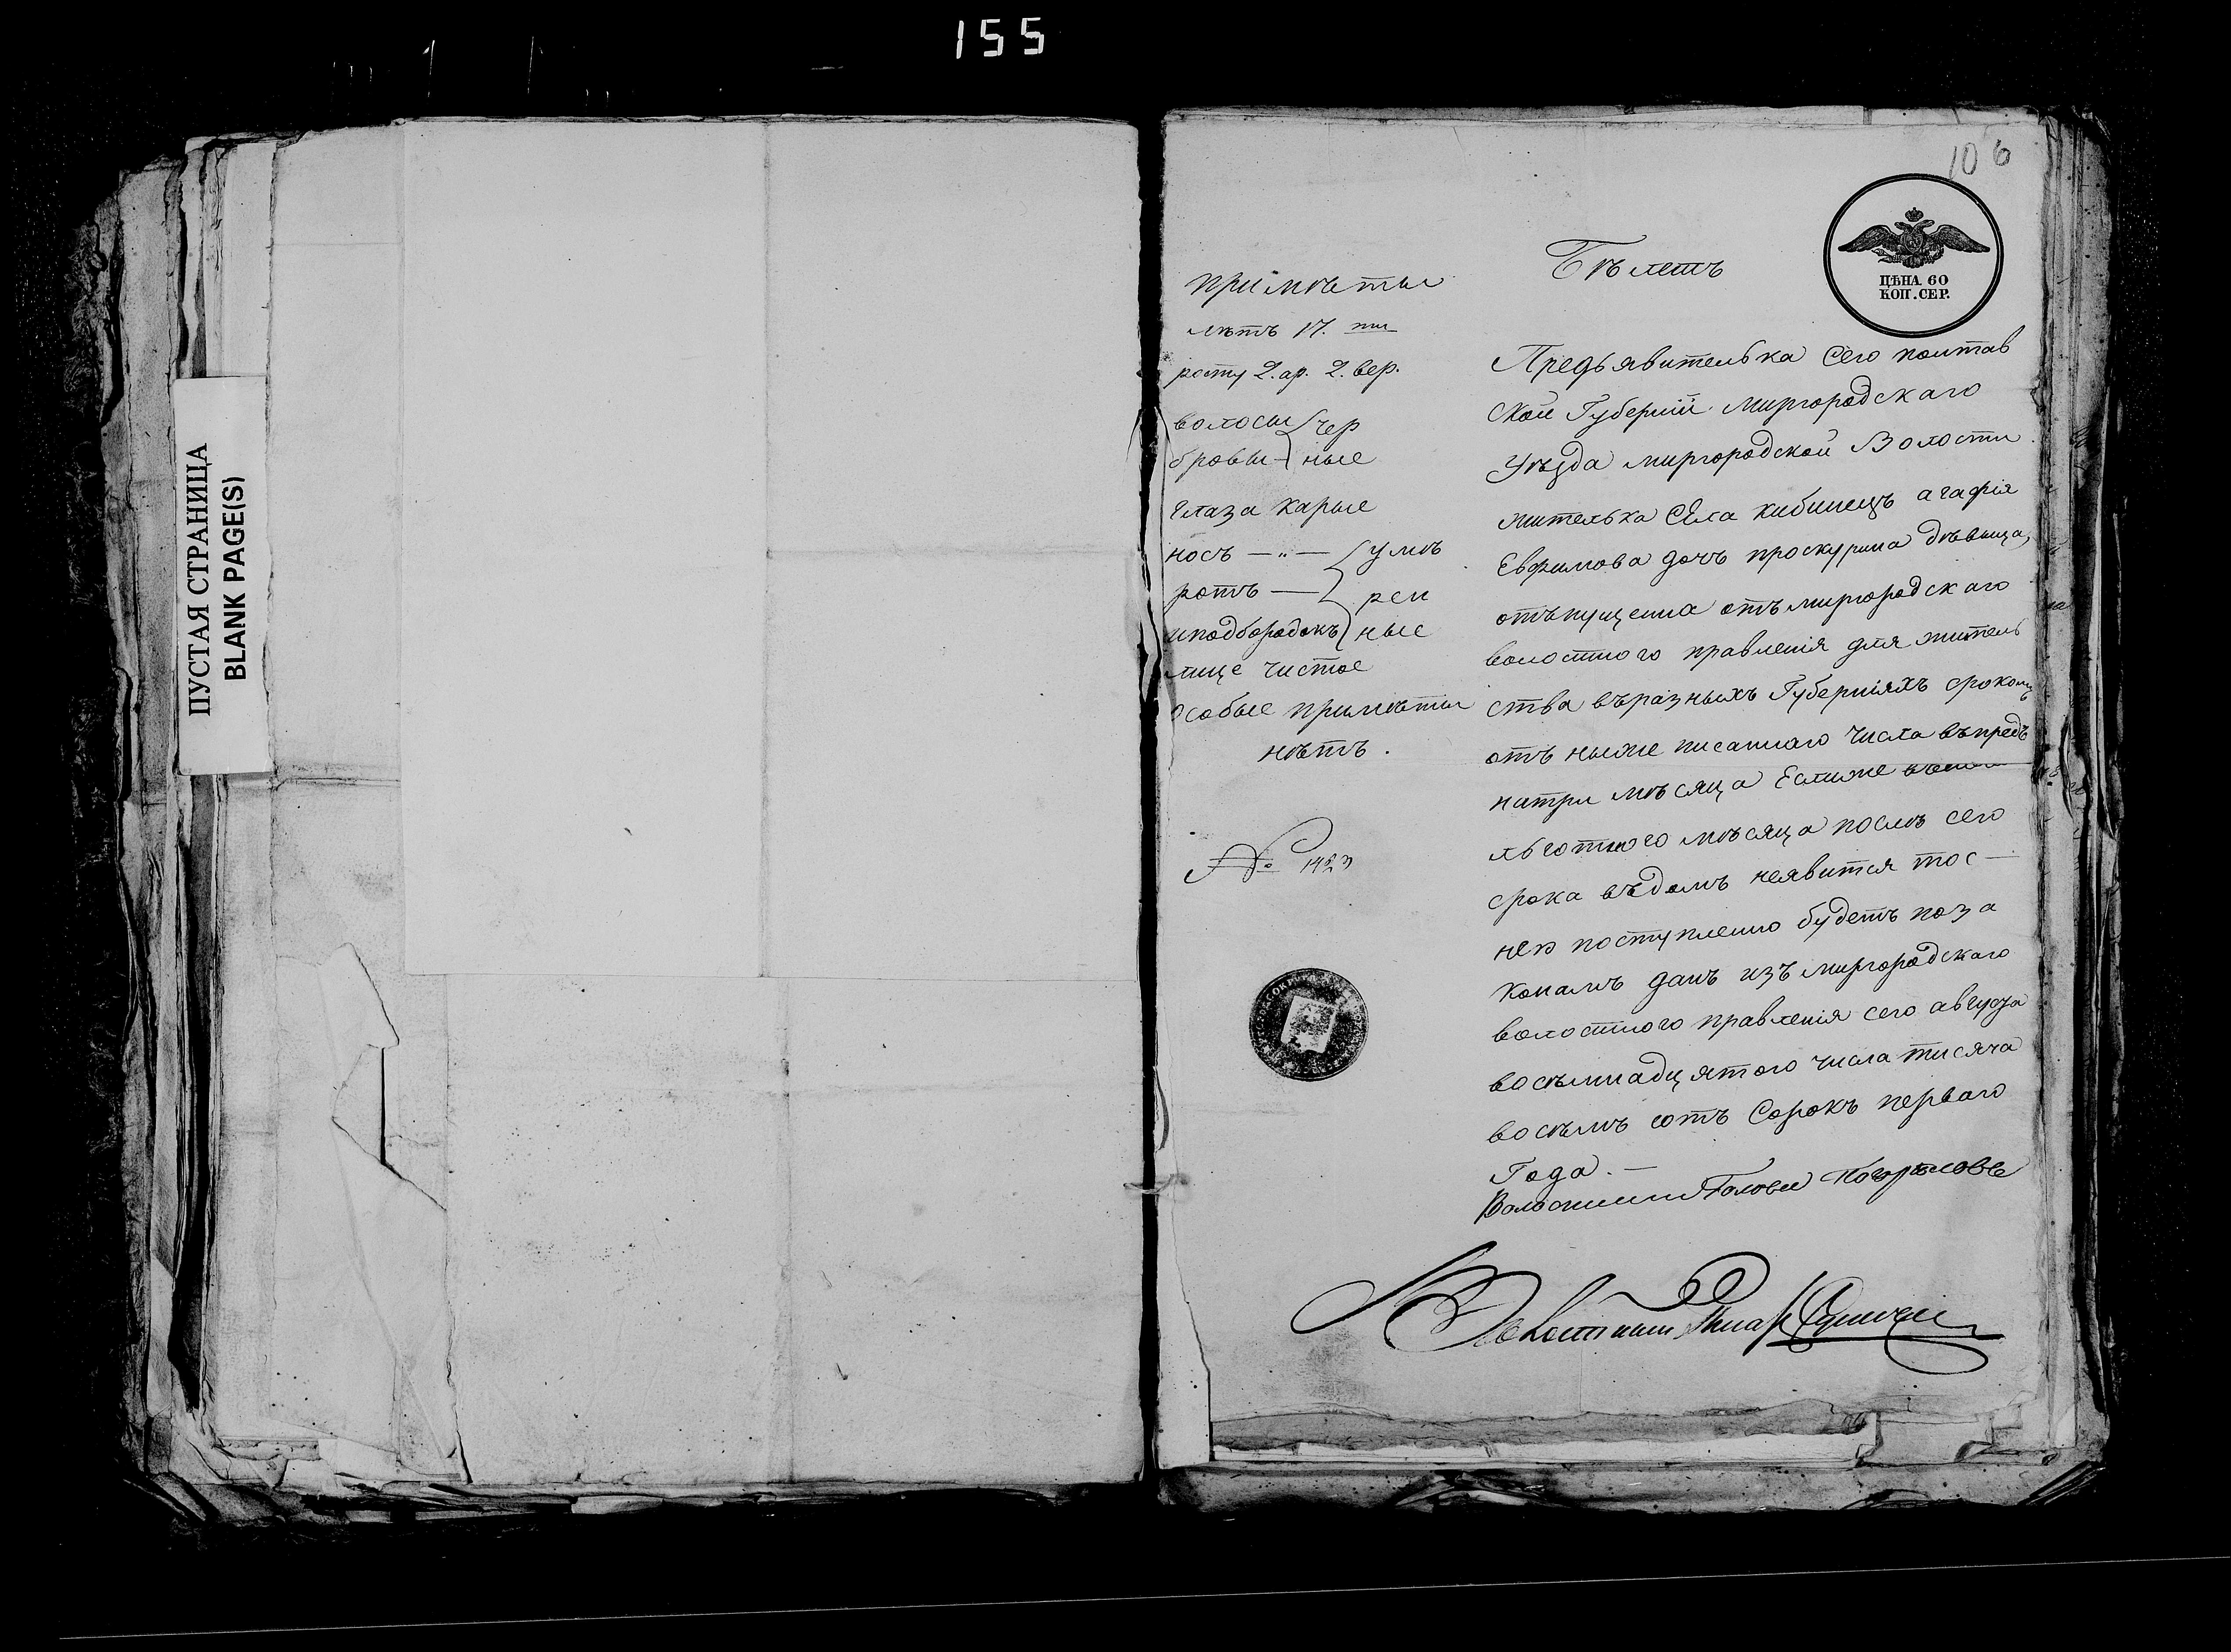 155
ПУСТАЯ СТРАНИЦА
BLANK PAGE(S)
106
Бѣлетъ
ЦѢНА 60
КОП. СЕР.
примѣты
лѣтъ 17. ти
росту 2. ар. 2. вер.
волосы чер
бровы ные
глаза карые
носъ — „ — умѣ
ротъ — рен
иподбородокъ ные
лице чистое
особые примѣты
нѣтъ.
№ 1423
Предъявителька сего полтав
ской Губерніи миргородскаго
уѣзда миргородской Волости
жителька Села кибинецъ агафія
Евфимова дочъ проскурина дѣвица,
отъпущенна отъ миргородскаго
волостного правленія для житель
ства въразныхъ Губерніяхъ срокомъ
отъ ниже писанного числа въпредъ
натри мѣсяца Еслиже
льготного мѣсяца послѣ сего
срока въдомъ неявится тос —
нею поступленно будетъ поза
конамъ данъ изъ миргородскаго
волостного правленія сего августа
восѣмнадцятого числа тисяча
восѣмъ сотъ Сорокъ перваго
Года. —
Волостний Голова
Волостний Писар